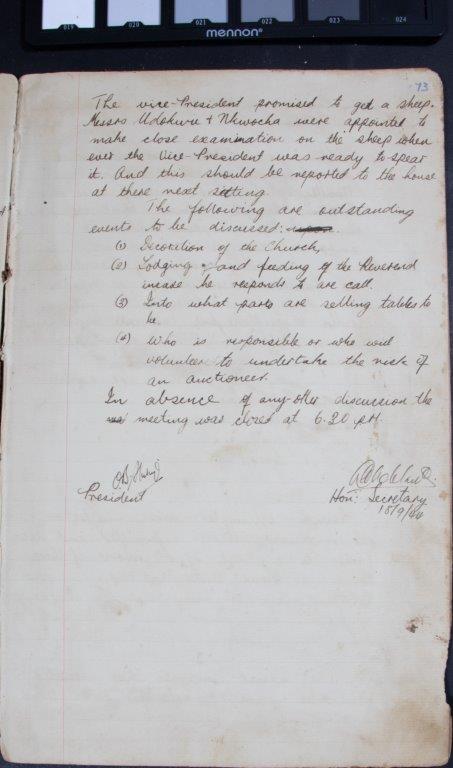 019 020 021 022 023 024
mennon®
73
The vice-President promised to get a sheep.
Messrs Udokwu & Nkwocha were appointed to
make close examination on the sheep when
ever the Vice-President was ready to spear
it. And this should be reported to the house
at there next sitting.
The following are outstanding
events to be discussed:
(1) Decoration of the Church,
(2) Lodging and feeding of the Reverend
incase he responds to are call.
(3) Into what parts are selling tables to
be.
(4) Who is responsible or who will
volunteer to undertake the work of
an auctioneer.
In absence of any other discussion the
meeting was closed at 6.20 pM.
President
Hon: Secretary
18/9/44